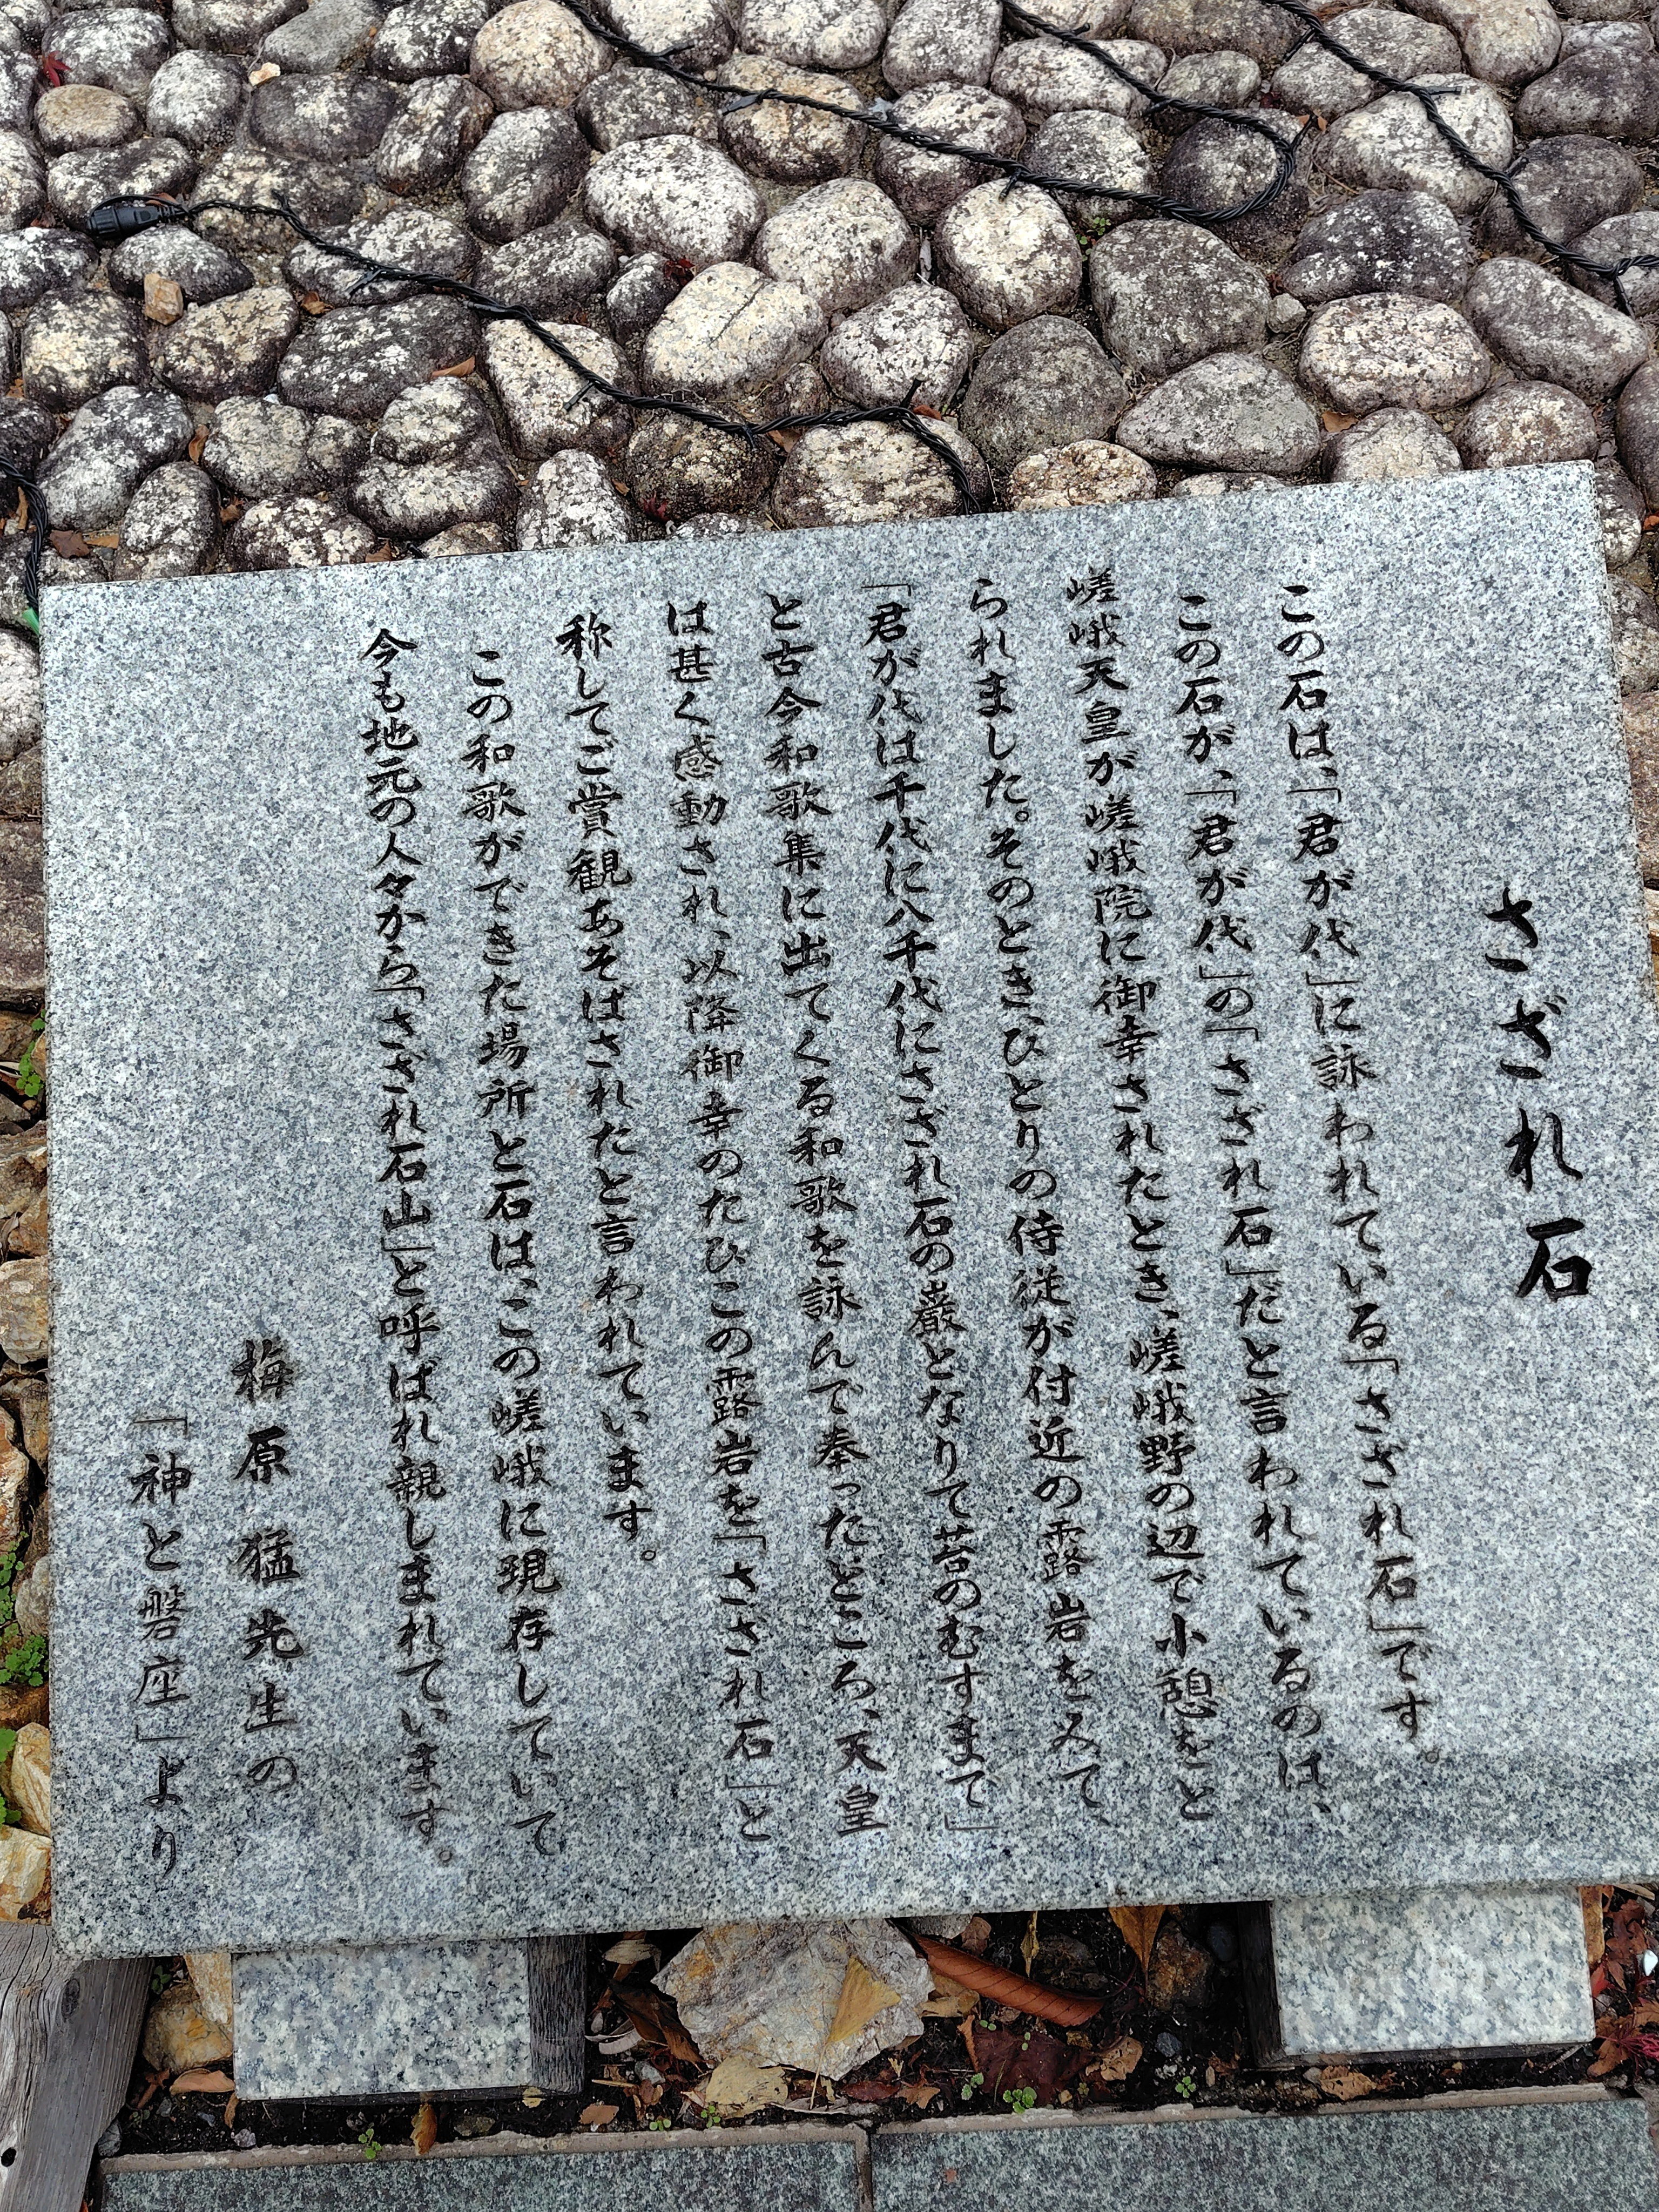 さざれ石
この石は、「君が代」に詠われている「さざれ石」です。
この石が、「君が代」の「さざれ石」だと言われているのは、
嵯峨天皇が嵯峨院に御幸されたとき、嵯峨野の辺で小憩をと
られました。そのとき、ひとりの侍従が付近の露岩をみて、
「君が代は千代に八千代にさざれ石の巌となりて苔のむすまで」
と古今和歌集に出てくる和歌を詠んで奉ったところ、天皇
は甚く感動され、以降御幸のたびこの露岩を「さざれ石」と
称してご賞観あそばされたと言われています。
この和歌ができた場所と石は、この嵯峨に現存していて
今も地元の人々から「さざれ石山」と呼ばれ親しまれています。
梅原猛先生の
「神と磐座」より